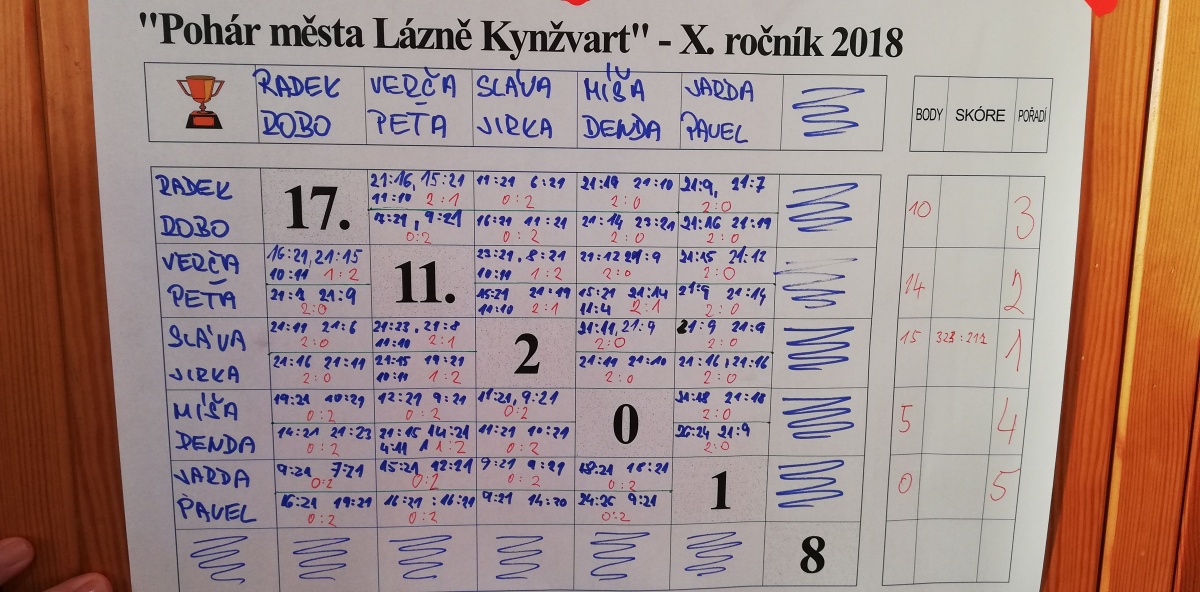 "Pohár města Lázně Kynžvart" - X. ročník 2018
RADEK VERČA SLÁVA MÍŠA JARDA
ROBO PEŤA JIRKA DENDA PAVEL
BODY SKÓRE POŘADÍ
RADEK 21:16, 15:21 11:21 6:21 21:19 21:10 21:9, 21:7
11:10 2:1 0:2 2:0 2:0
17. 10 3
ROBO 9:21 16:21 11:21 21:14 21:16 21:19
0:2 0:2 2:0 2:0
VERČA 16:21, 21:15 23:21, 8:21 21:12 21:9 21:15 21:12
10:11 1:2 10:11 1:2 2:0 2:0
11. 14 2
PEŤA 21:9 15:21 21:19 15:21 21:14 21:9 21:14
2:0 11:10 2:1 11:4 2:1 2:0
SLÁVA 21:11 21:6 21:23, 21:8 21:11, 21:9 21:9 21:9
2:0 11:10 2:1 2:0 2:0
2 15 1
JIRKA 21:16 21:11 21:15 19:21 21:11 21:10 21:16, 21:16
2:0 10:11 1:2 2:0 2:0
MÍŠA 19:21 10:21 12:21 9:21 11:21, 9:21 21:18 21:18
0:2 0:2 0:2 2:0
0 5 4
DENDA 14:21 21:23 21:15 14:21 11:21 10:21 26:24 21:9
0:2 4:11 1:2 0:2 2:0
JARDA 9:21 7:21 15:21 12:21 9:21 9:21 18:21 18:21
0:2 0:2 0:2 0:2
1 0 5
PAVEL 16:21 19:21 16:21 : 16:21 9:21 24:26 9:21
0:2 0:2 0:2
8